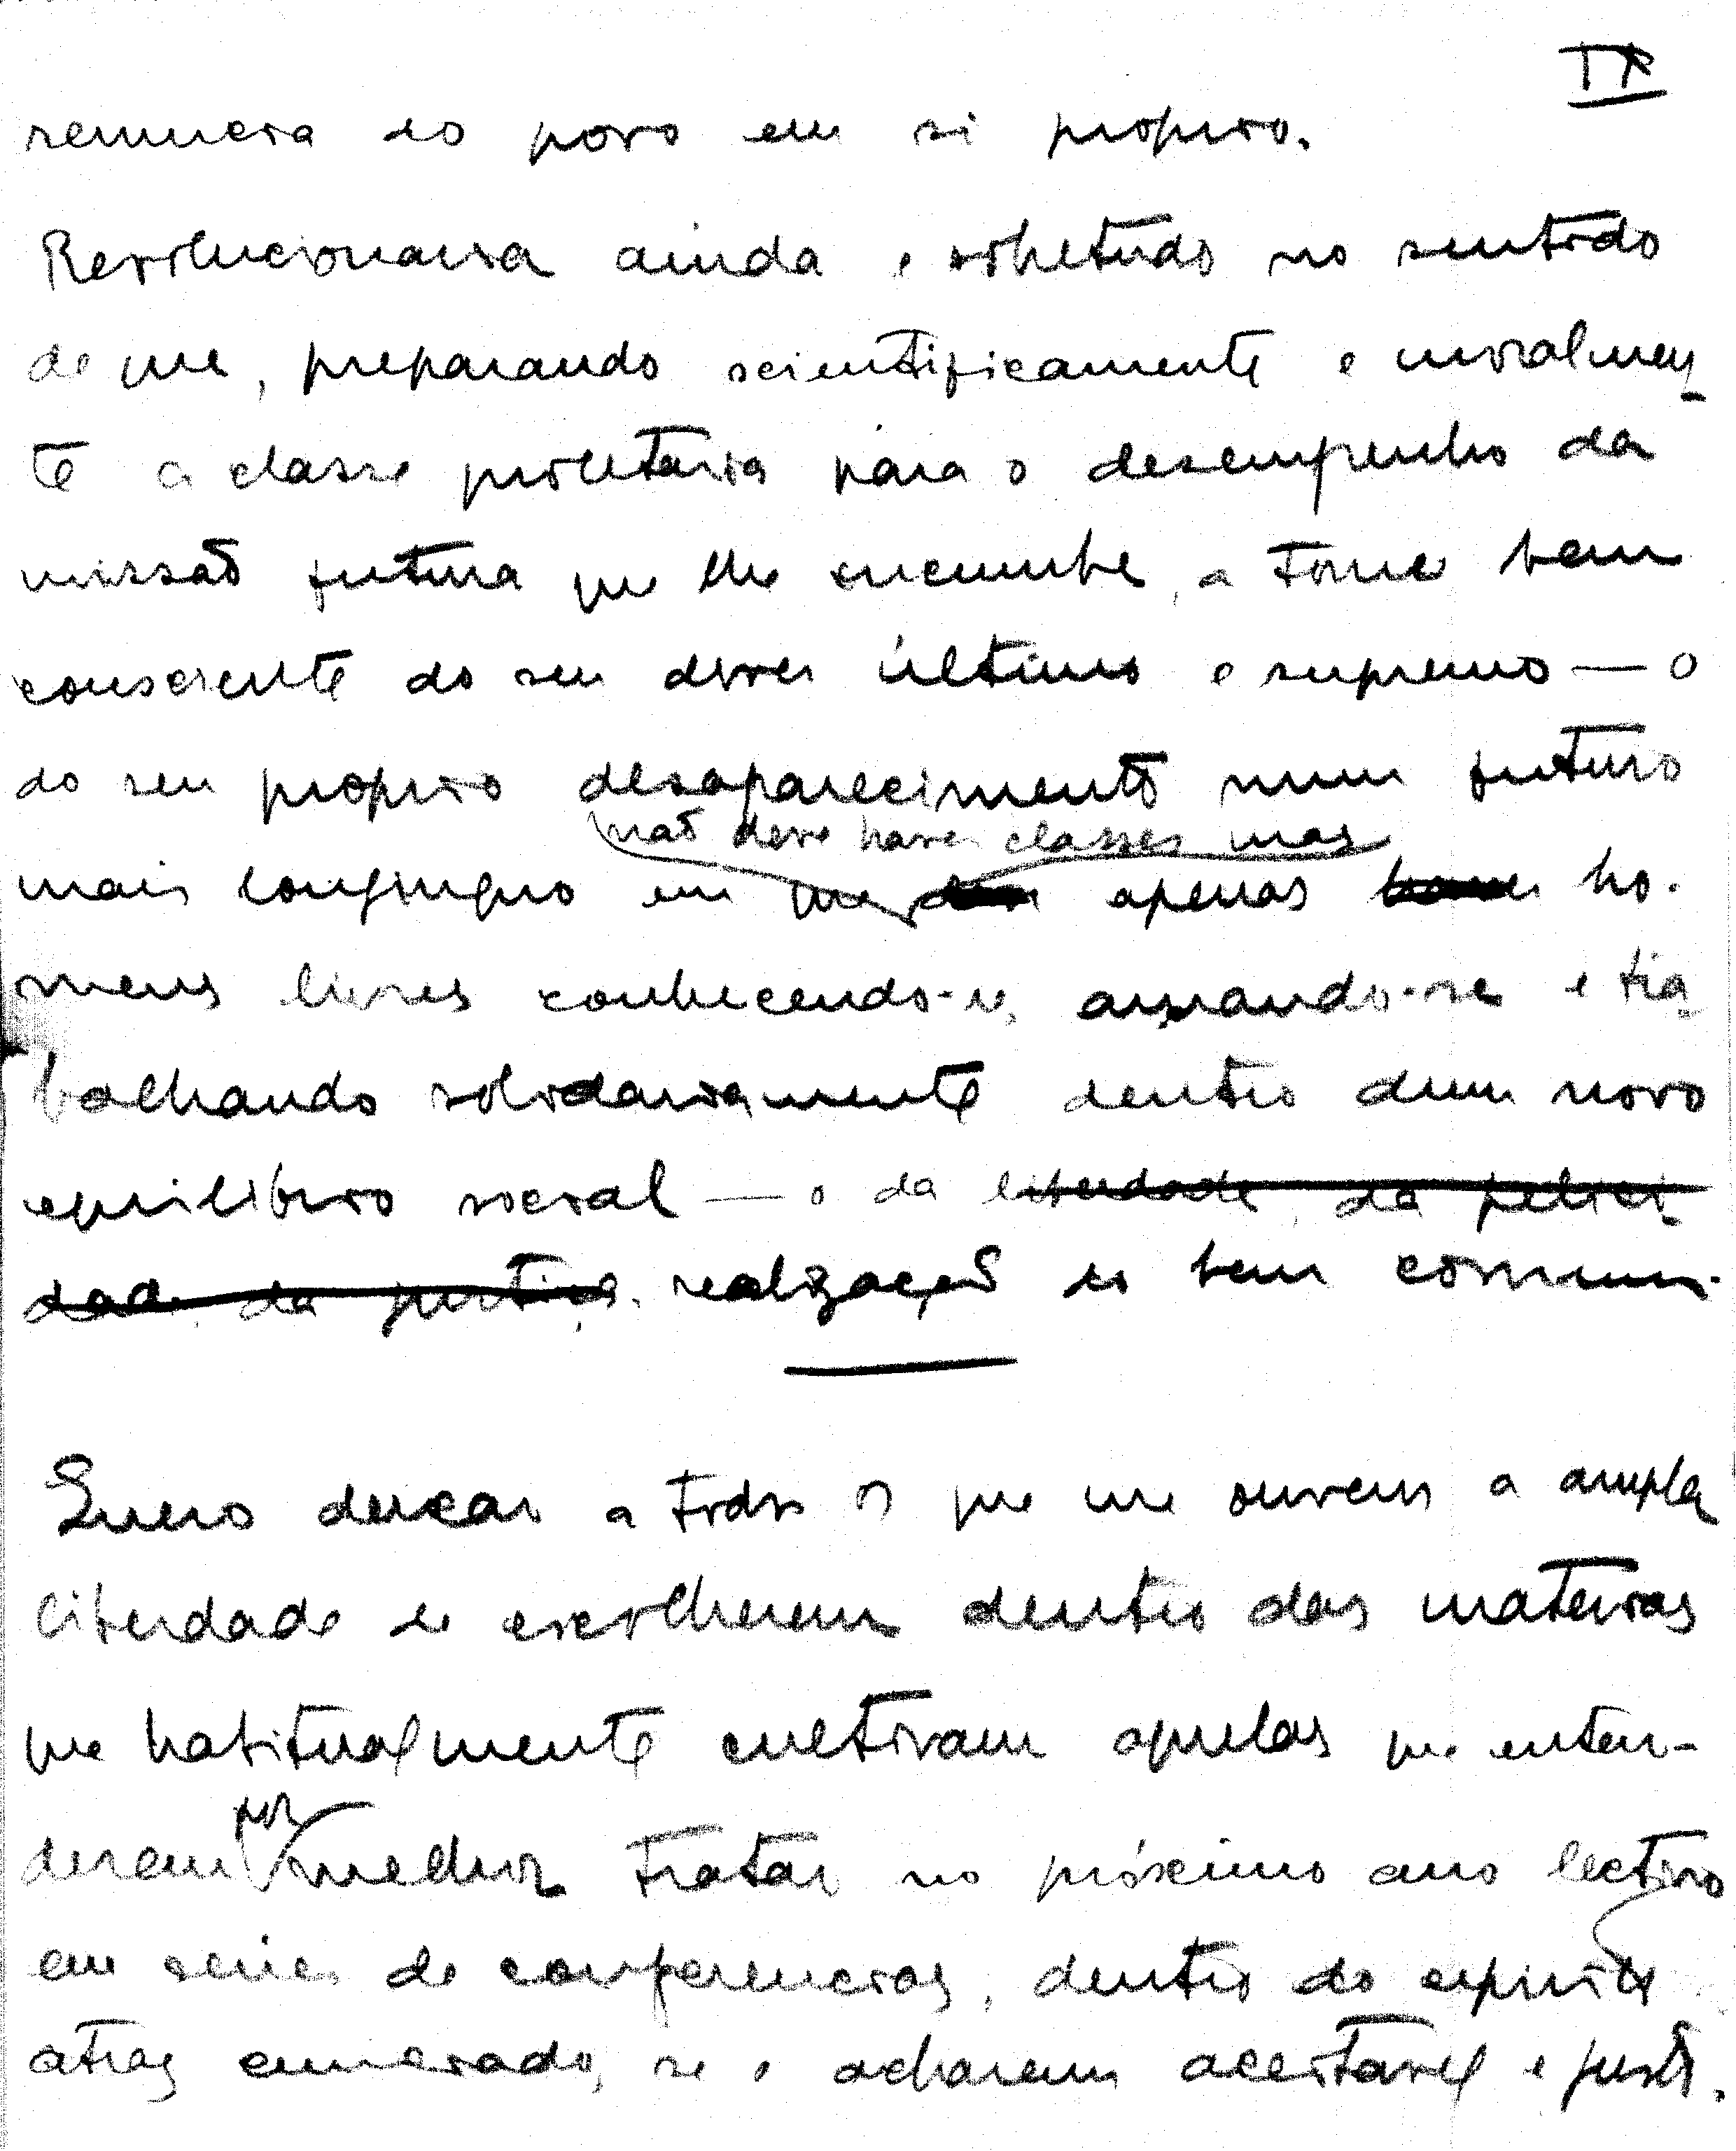 IX
renuncia do povo em si proprio.
Revolucionaria ainda e sobretudo no sentido
de que, preparando scientificamente e moralmen-
te a classe proletaria para o desempenho da
missão futura que lhe incumbe, a torne bem
consciente do seu dever último e supremo — o
do seu proprio desaparecimento num futuro
não deve haver classes mas
mais longinquo em que apenas ho-
mens livres conhecendo-se, amando-se e tra-
balhando solidariamente dentro dum novo
equilibrio social — o da liberdade, da felici-
dade, da justiça. realização do bem comum.
Quero deixar a todos os que me ouvem a ampla
liberdade de escolherem dentro das materias
que habitualmente cultivam aquelas que enten-
por
derem melhor tratar no próximo ano lectivo
em series de conferencias, dentro do espirito
atras enunciado, se o acharem aceitavel e justo.